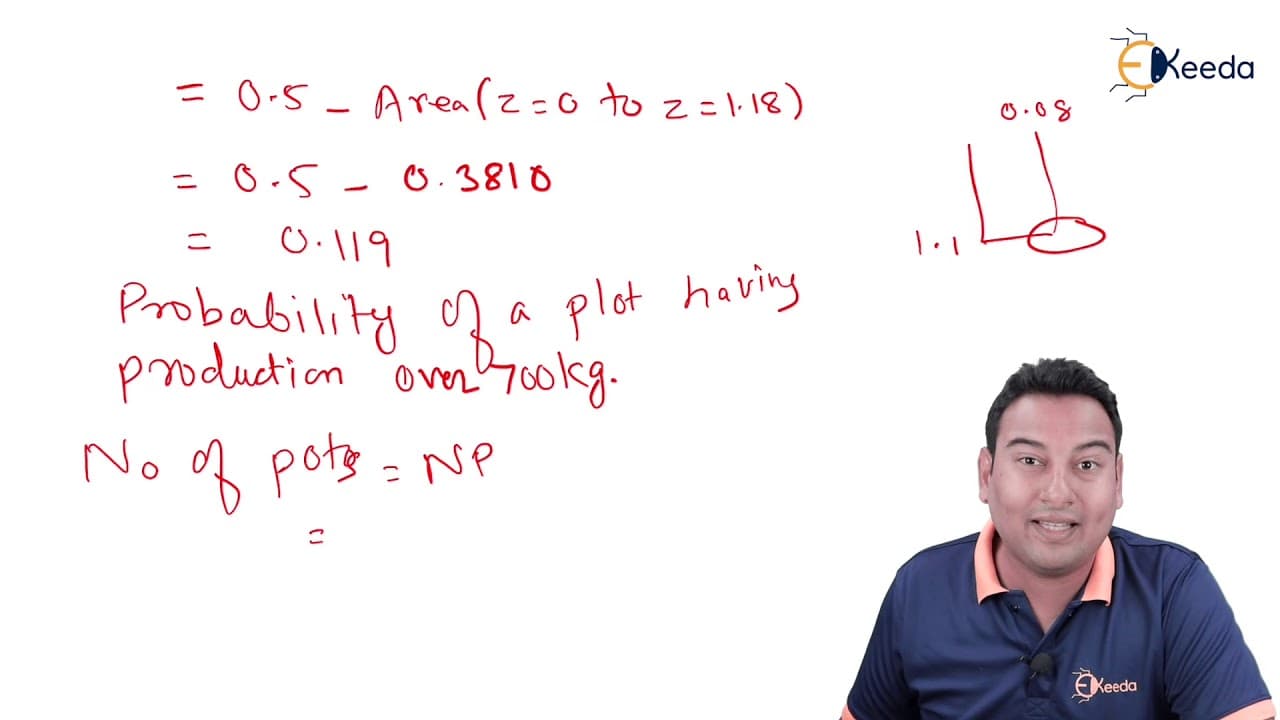 EKeeda
= 0.5 - Area(z=0 to z=1.18)
0.08
= 0.5 - 0.3810
= 0.119
1.1
Probability of a plot having
production over 700kg.
No of pots = NP
=
EKeeda